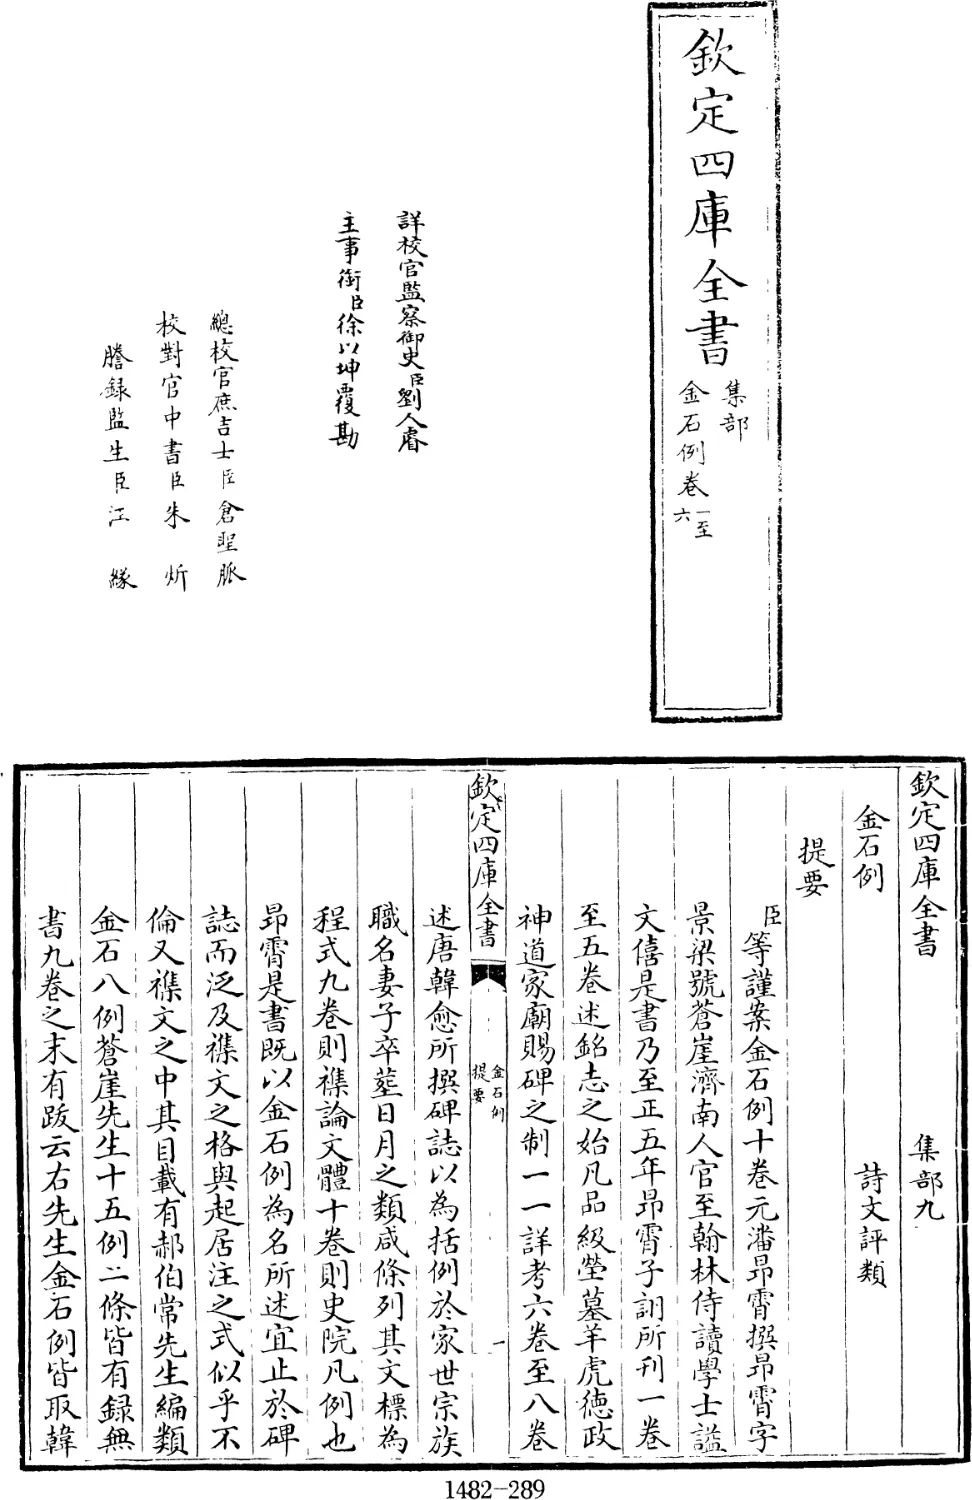 欽定四庫全書
集部
金石例卷一至六
詳校官監察御史臣劉人睿
主事銜臣徐以坤覆勘
總校官庶吉士臣倉聖脈
校對官中書臣朱炘
謄録監生臣江緣
欽定四庫全書 集部九
金石例 詩文評類
提要
臣等謹案金石例十卷元潘昂霄撰昂霄字
景梁號蒼崖濟南人官至翰林侍讀學士諡
文僖是書乃至正五年昂霄子詡所刊一卷
至五卷述銘志之始凡品級塋墓羊虎徳政
神道家廟賜碑之制一一詳考六卷至八卷
欽定四庫全書
金石例
提要
一
述唐韓愈所撰碑誌以為括例於家世宗族
職名妻子卒葬日月之類咸條列其文標為
程式九卷則襍論文體十卷則史院凡例也
昻霄是書既以金石例為名所述宜止於碑
誌而泛及襍文之格與起居注之式似乎不
倫又襍文之中其目載有郝伯常先生編類
金石八例蒼崖先生十五例二條皆有録無
書九卷之末有跋云右先生金石例皆取韓
1482-289